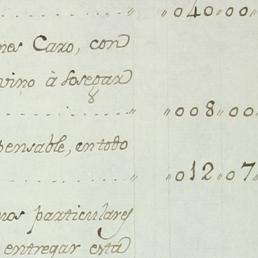 . . . . . . . . . . . . " " 040 " 00 "
nes Caro, con
vino à Sosegar
. . . . . . . . . . . . " " 008 " 00
pensable, en todo
. . . . . . . . . . . . " " 012 " 07
nos particulares
entregar esta